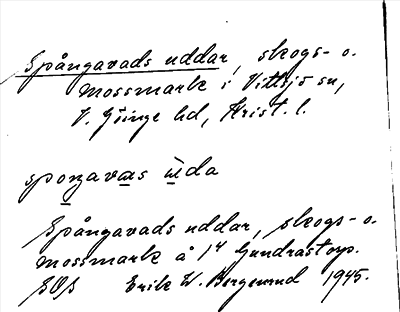 Spångavads uddar, skogs- o.
mossmark i Vittsjö sn,
V. Göinge hd, Krist. l.
sponzavas ùda
Spångavads uddar, skogs- o.
mossmark å 1⁴ Gundrastorp.
Erik W. Bergerud 1945.